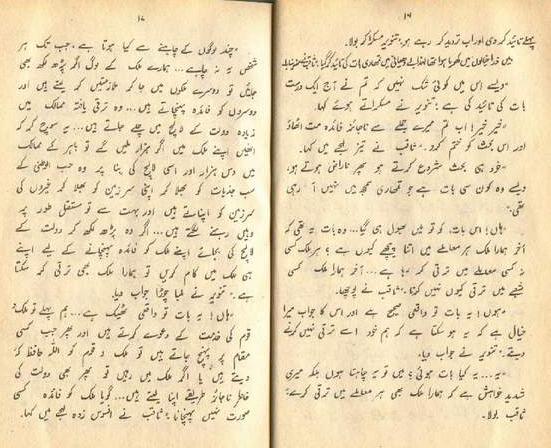 ۱۶
پہلے تائید کر دی اور اب تردید کر رہے ہو۔ تنویر مسکرا کر بولا۔
میں خدا خیالوں میں کھویا ہوا تھا لہٰذا بے دھیانی میں تمہاری بات کی تائید کر گیا، ثاقب نے
ویسے اس میں کوئی شک نہیں کہ تم نے آج ایک درست
بات کی تائید کی ہے۔ تنویر نے مسکراتے ہوئے کہا۔
خیر خیر! اب تم میرے جملے سے ناجائز فائدہ مت اٹھاؤ
اور اس بحث کو ختم کرو۔ ثاقب نے تیز لہجے میں کہا۔
خود ہی بحث شروع کرتے ہو پھر ناراض ہوتے ہو،
ویسے وہ کون سی بات ہے جو تمہاری سمجھ میں نہیں آ رہی
تھی۔
ہاں! اس بات کو تو میں بھول ہی گیا... وہ بات یہ تھی کہ
آخر ہمارا ملک ہر معاملے میں اتنا پیچھے کیوں ہے؟ ہر ملک کسی
نہ کسی معاملے میں ترقی کر رہا ہے... آخر ہمارا ملک کسی
شعبے میں ترقی کیوں نہیں کرتا؟ ثاقب نے پوچھا۔
ہوں! یہ بات تو واقعی صحیح ہے اور اس کا جواب میرا
خیال ہے کہ یہ ہو سکتا ہے کہ ہم خود اسے ترقی نہیں کرنے
دیتے۔ تنویر نے جواب دیا۔
یہ... یہ کیا بات ہوئی؟ میں تو یہ چاہتا ہوں بلکہ میری
شدید خواہش ہے کہ ہمارا ملک بھی ہر معاملے میں ترقی کرے
ثاقب بولا۔
۱۷
چند لوگوں کے چاہنے سے کیا ہوتا ہے، جب تک ہر
شخص یہ نہ چاہے... ہمارے ملک کے لوگ اگر پڑھ لکھ بھی
جائیں تو دوسرے ملکوں میں جا کر ملازمتیں کر لیتے ہیں اور
دوسروں کو فائدہ پہنچاتے ہیں... وہ ترقی یافتہ ممالک میں
زیادہ دولت کے لالچ میں چلے جاتے ہیں... یہ صحیح ہے کہ
انھیں اپنے ملک میں اگر ہزار ملیں گے تو باہر کے ممالک
میں دس ہزار اور اسی لالچ کی بنا پر وہ حب الوطنی کے
سب جذبات کو بھلا کر اپنی سرزمین کو بھلا کر غیروں کی
سرزمین کو اپناتے ہیں اور بہت سے تو مستقل طور پر
وہیں رہنے لگتے ہیں... اگر وہ پڑھ لکھ کر دولت کے
لالچ کی بجائے اپنے ملک کو فائدہ پہنچانے کے لیے اپنے
ہی ملک میں کام کریں تو ہمارا ملک بھی ترقی کر سکتا
ہے۔ تنویر نے لمبا چوڑا جواب دیا۔
ہاں! یہ بات تو واقعی ٹھیک ہے... ہم پہلے تو ملک و
قوم کی خدمت کے دعوے کرتے ہیں اور پھر جب کسی
مقام پر پہنچ جاتے ہیں تو ملک و قوم کو اللہ حافظ کہہ
دیتے ہیں یا اگر ملک میں رہیں تو پھر بھی دولت کی
خاطر ناجائز طریقے اپنا لیتے ہیں... گویا ملک کو فائدہ کسی
صورت نہیں پہنچاتا۔ ثاقب نے افسوس زدہ لہجے میں کہا۔